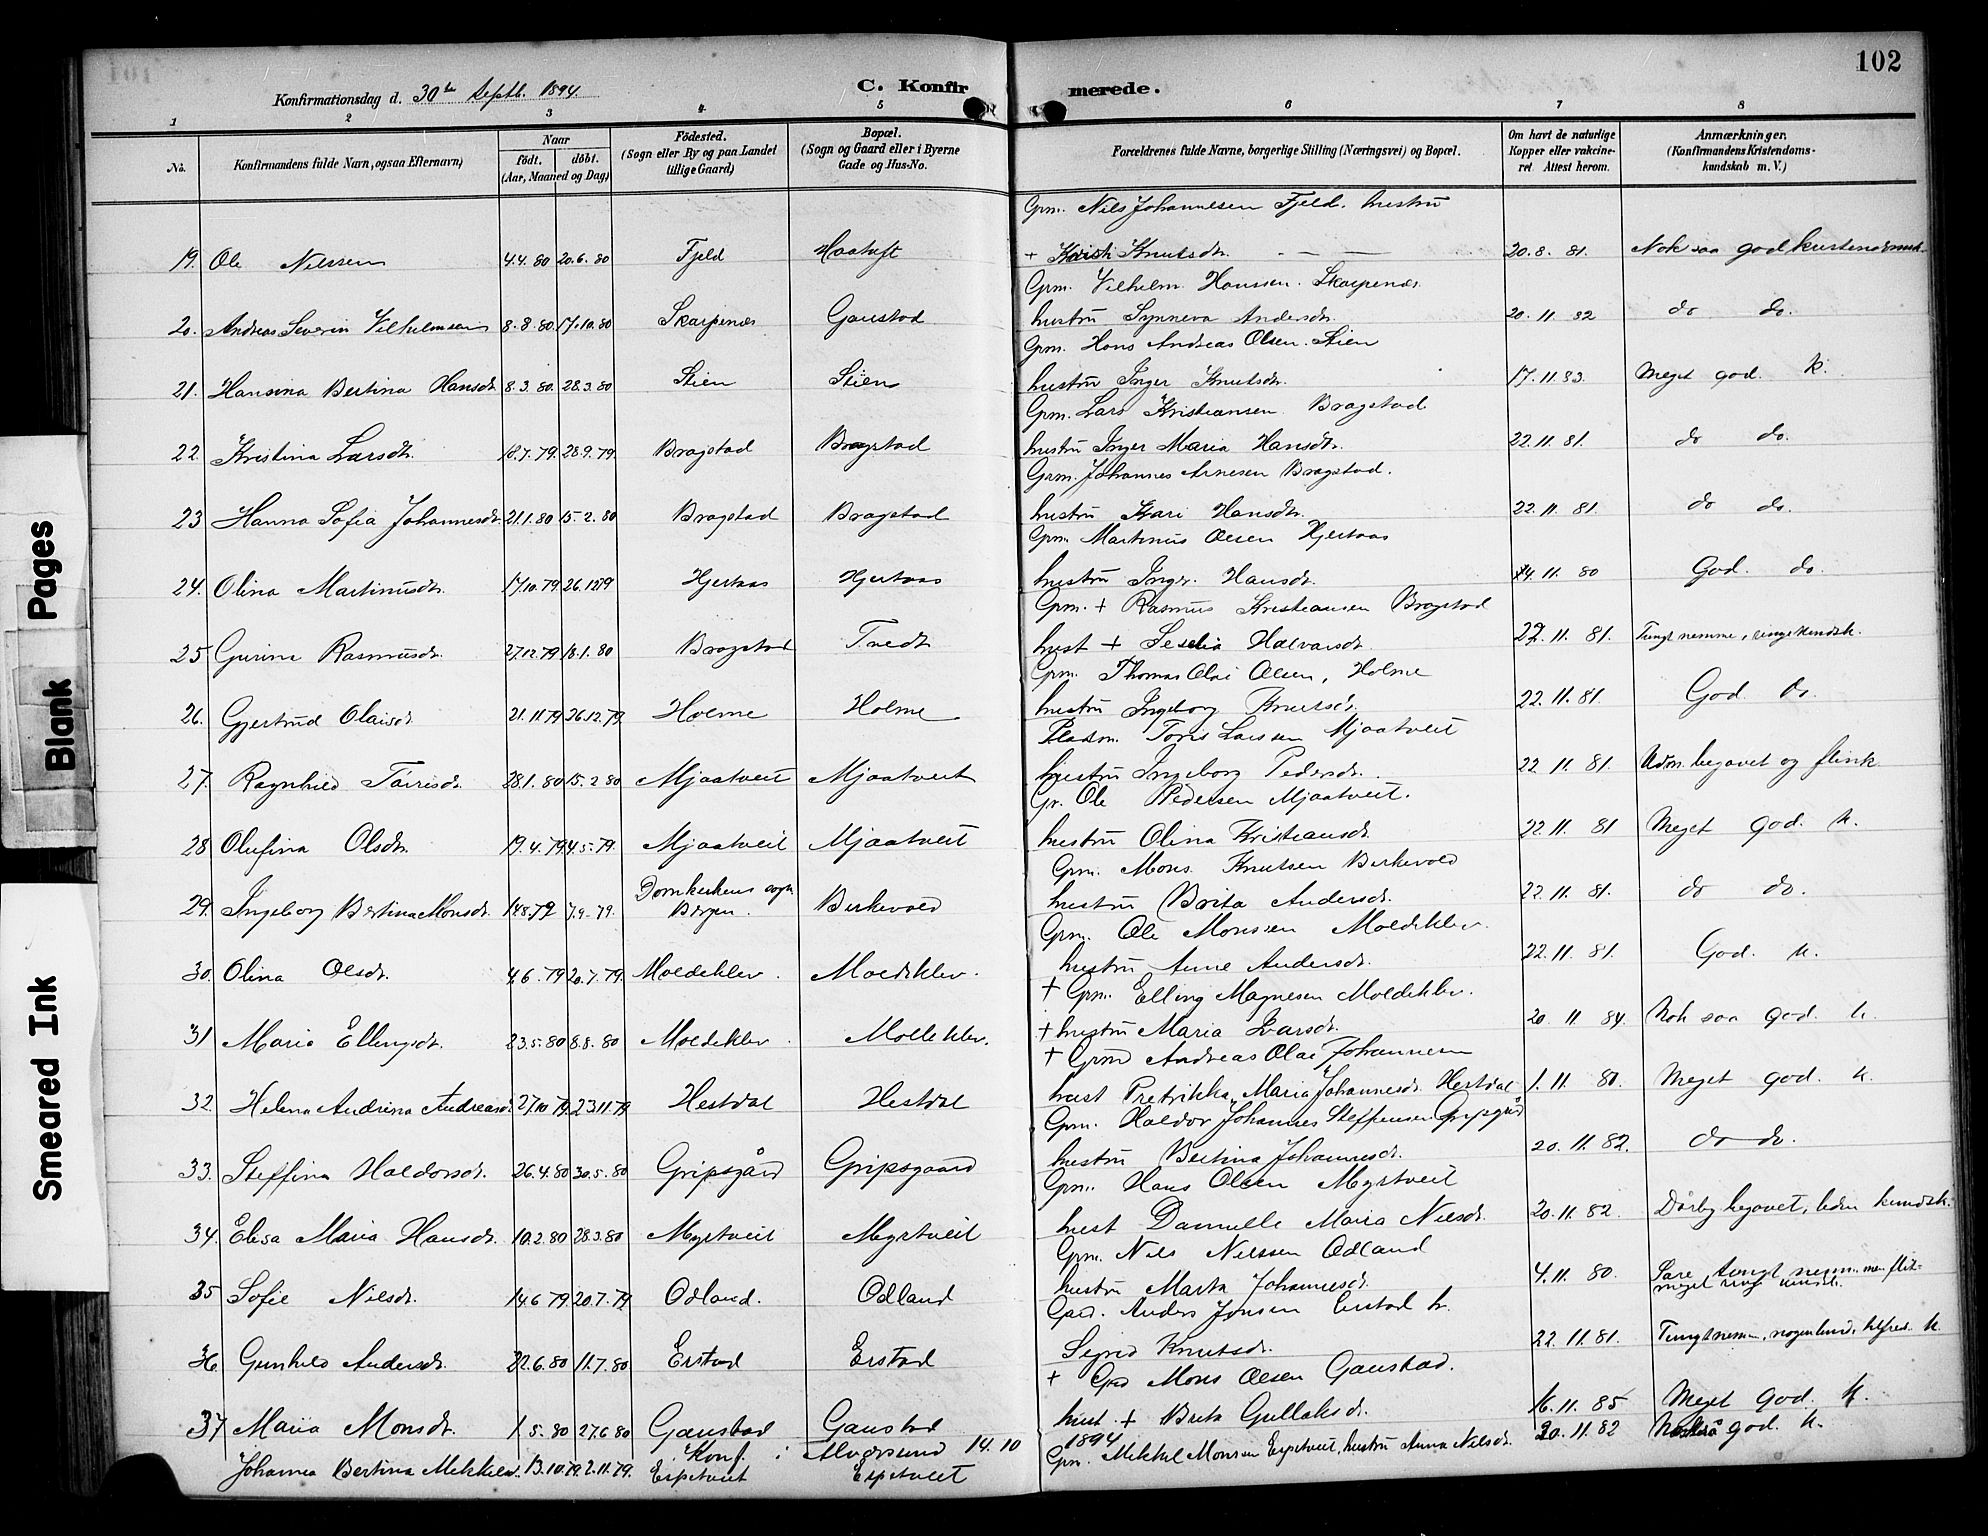 102
Konfirmationsdag d. 30te Septb. 1894.
C. Konfirmerede.
1 2 3 4 5 6 7 8
No. Konfirmandens fulde Navn, ogsaa Efternavn) Naar født. døbt. (Aar, Maaned og Dag) Fødested. (Sogn eller By og paa Landet tillige Gaard) Bopæl. (Sogn og Gaard eller i Byerne Gade og Hus-No. Forældrenes fulde Navne, borgerlige Stilling (Næringsvei) og Bopæl. Om havt de naturlige Kopper eller vakcineret Attest herom. Anmærkninger. (Konfirmandens Kristendomskundskab m. V.)
Gpm. Nils Johannesen Fjeld. hustru
19. Ole Nilssen 4.4.80 20.6.80 Fjeld Haatuft + Kristi Knutsdr. 20.8.81. Nok saa god kristendomsk.
Gpm. Vilhelm Hanssen. Skarpenæs
20. Andreas Severin Vilhelmsen 8.8.80 17.10.80 Skarpenæs Gaustad hustru Synneva Andersdr. 20.11.82 do do.
Gpm. Hans Andreas Olsen. Stien
21. Hansina Bertina Hansdr. 8.3.80. 28.3.80 Stien Stien hustru Inger Knutsdr. 17.11.83. Meget god. K.
Gpm. Lars Kristiansen Bragstad
22. Kristina Larsdr. 18.7.79. 28.9.79. Bragstad Bragstad hustru Inger Maria Hansdr. 22.11.81. do do.
Gpm. Johannes Arnesen Bragstad.
23 Hanna Sofia Johannesdr. 21.1.80 15.2.80 Bragstad Bragstad hustru Kari Hansdr. 22.11.81. do do.
Gpm. Martinus Olsen Hjertaas
24. Olina Martinusdr. 17.10.79 26.12.79 Hjertaas Hjertaas hustru Inger. Hansdr. 14.11.80 God. do.
Gpm. + Rasmus Kristiansen Bragstad
25 Gurina Rasmusdr. 27.12.79 18.1.80 Bragstad Tvedt hust + Seselia Halvarsdr. 22.11.81. Tungt nemme, ringe kundsk.
Gpm. Thomas Olai Olsen, Holme
26. Gjertrud Olaisdr. 21.11.79 26.12.79. Holme Holme hustru Ingeborg Knutsdr. 22.11.81. God do.
Pladsm. Toris Larssen Mjaatveit
27. Ragnhild Torrisdr. 28.1.80 15.2.80 Mjaatveit Mjaatveit hustru Ingeborg Pedersdr. 22.11.81. Udm. begavet og flink
Gr. Ole Pedersen Mjaatveit.
28 Olufina Olsdr. 19.4.79 4.5.79. Mjaatveit Mjaatveit hustru Olina Kristiansdr. 22.11.81 Meget god. K.
Gpm. Mons Knutsen Birkevold
29. Ingeborg Bertina Monsdr. 14.8.79 7.9.79. Domkirkens sogn Bergen. Birkevold hustru Brita Andersdr. 22.11.81. do do.
Gpm. Ole Monssen Moldeklev.
30. Olina Olsdr. 4.6.79 20.7.79. Moldeklev. Moldeklev. hustru Anne Andersdr. 22.11.81. God. K.
+ Gpm. Elling Magnesen Moldeklev.
31 Maria Ellingsdr. 23.5.80 8.8.80 Moldeklev. Moldeklev. + hustru Maria Larsdr. 20.11.84. Nok saa god. K
+ Gpm Andreas Olai Johannesen
32. Helena Andrina Andreasdr. 27.10.79 23.11.79 Hestdal Hestdal hust Predrikka Maria Johannesdr. Hestdal 1.11.80. Meget god. K.
Gpm. Haldor Johannes Steffensen Gripsgård
33. Steffina Haldorsdr. 26.4.80 30.5.80 Gripsgård Gripsgaard hustru Bertina Johannesdr. 20.11.82. do do.
Gpm. Hans Olsen Myrtveit
34. Elisa Maria Hansdr. 10.2.80 28.3.80 Myrtveit Myrtveit hust Danielle Maria Nilsdr. 20.11.82. Dårlig begavet, liden kundsk.
Gpm. Nils Nilssen Odland
35 Sofie Nilsdr. 14.6.79 20.7.79 Odland. Odland hustru Marta Johannesdr. 4.11.80. Sare tungt nem. men flit- meget ring kundsk.
Gpm. Anders Jonsen Erstad h.
36. Gunhild Andersdr. 22.6.80 11.7.80 Erstad Erstad Sigrid Knutsdr. 22.11.81. Tungt nemm, nogenlund. tilfreds. K.
+ Gpm Mons Olsen Gaustad.
37 Maria Monsdr. 1.5.80 27.6.80 Gaustad Gaustad hust. + Brita Gullaksdr. 16.11.85 Meget God. K.
Konf. i Alversund 14.10 1894
Johanna Bertina Mikkelsd. 13.10.79. 2.11.79. Espetveit Espetveit Gpm. Mikkel Monsen Espetveit, hustru Anna Nilsdr. 20.11.82 Nokså god. K.
Blank Pages
Smeared Ink